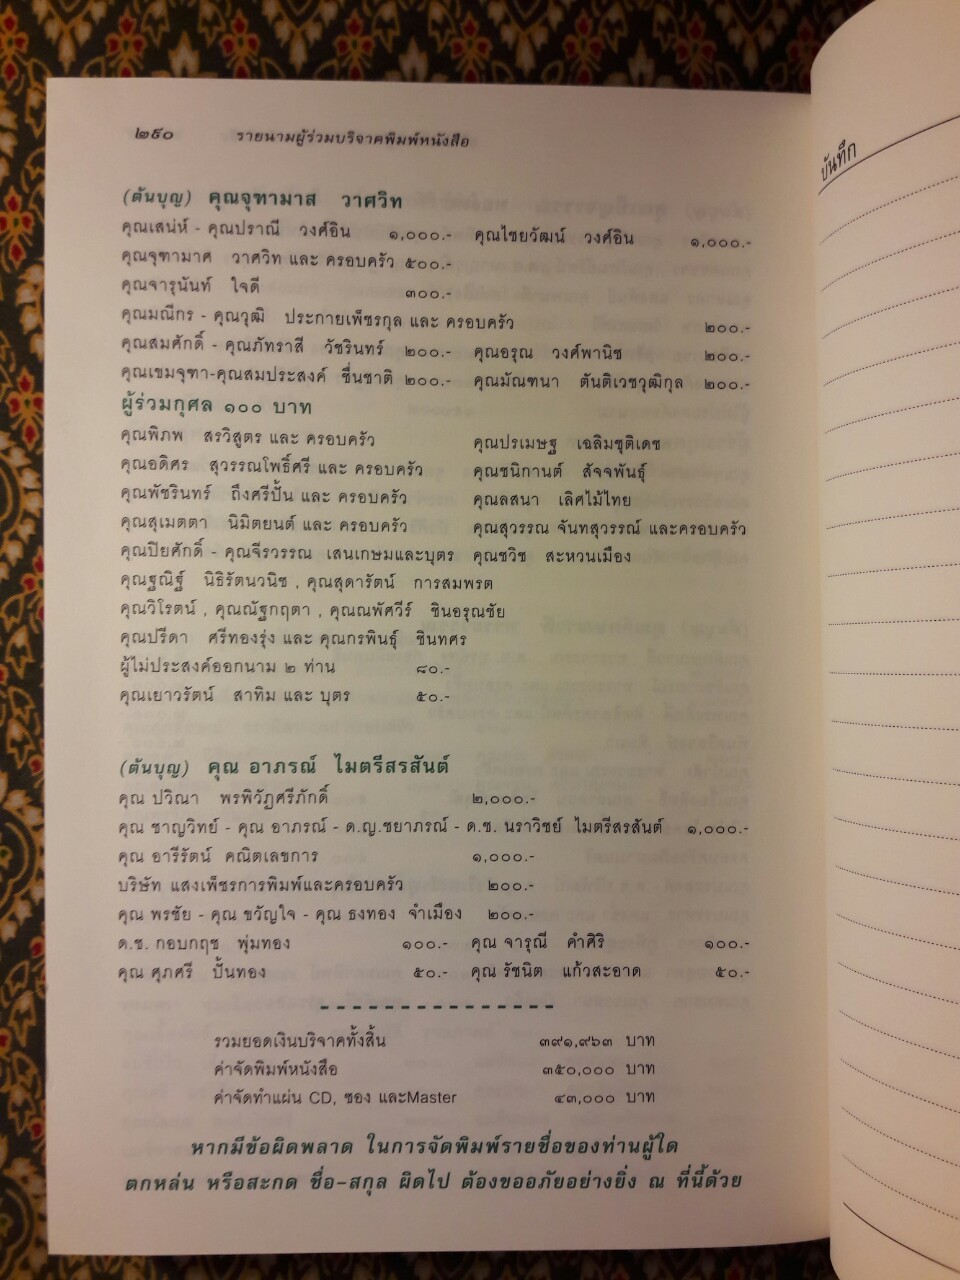 ๒๙๐ รายนามผู้ร่วมบริจาคพิมพ์หนังสือ
(ต้นบุญ) คุณจุฑามาส วาศวิท
คุณเสน่ห์ - คุณปราณี วงศ์อิน ๑,๐๐๐.- คุณไชยวัฒน์ วงศ์อิน ๑,๐๐๐.-
คุณจุฑามาศ วาศวิท และ ครอบครัว ๕๐๐.-
คุณจารุนันท์ ใจดี ๓๐๐.-
คุณมณีกร - คุณวุฒิ ประกายเพ็ชรกุล และ ครอบครัว ๒๐๐.-
คุณสมศักดิ์ - คุณภัทราสี วัชรินทร์ ๒๐๐.- คุณอรุณ วงศ์พานิช ๒๐๐.-
คุณเขมจุฑา-คุณสมประสงค์ ชื่นชาติ ๒๐๐.- คุณมัณฑนา ตันติเวชวุฒิกุล ๒๐๐.-
ผู้ร่วมกุศล ๑๐๐ บาท
คุณพิภพ สรวิสูตร และ ครอบครัว คุณปรเมษฐ เฉลิมชุติเดช
คุณอดิศร สุวรรณโพธิ์ศรี และ ครอบครัว คุณชนิกานต์ สัจจพันธุ์
คุณพัชรินทร์ ถึงศรีปั้น และ ครอบครัว คุณลสนา เลิศไม้ไทย
คุณสุเมตตา นิมิตยนต์ และ ครอบครัว คุณสุวรรณ จันทสุวรรณ์ และครอบครัว
คุณปิยศักดิ์ - คุณจีรวรรณ เสนเกษมและบุตร คุณชวิช สะหวนเมือง
คุณฐณิฐ์ นิธิรัตนวนิช , คุณสุดารัตน์ การสมพรต
คุณวิโรตน์ , คุณณัฐกฤตา , คุณณพัศวีร์ ชินอรุณชัย
คุณปรีดา ศรีทองรุ่ง และ คุณกรพินธุ์ ชินทศร
ผู้ไม่ประสงค์ออกนาม ๒ ท่าน ๘๐.-
คุณเยาวรัตน์ สาทิม และ บุตร ๕๐.-
(ต้นบุญ) คุณ อาภรณ์ ไมตรีสรสันต์
คุณ ปวิณา พรพิวัฏศรีภักดิ์ ๒,๐๐๐.-
คุณ ชาญวิทย์ - คุณ อาภรณ์ - ด.ญ.ชยาภรณ์ - ด.ช. นราวิชย์ ไมตรีสรสันต์ ๑,๐๐๐.-
คุณ อารีรัตน์ คณิตเลขการ ๑,๐๐๐.-
บริษัท แสงเพ็ชรการพิมพ์และครอบครัว ๒๐๐.-
คุณ พรชัย - คุณ ขวัญใจ - คุณ ธงทอง จำเมือง ๒๐๐.-
ด.ช. กอบกฤช พุ่มทอง ๑๐๐.- คุณ จารุณี คำศิริ ๑๐๐.-
คุณ ศุภศรี ปั้นทอง ๕๐.- คุณ รัชนิต แก้วสะอาด ๕๐.-
รวมยอดเงินบริจาคทั้งสิ้น ๓๙๑,๙๖๓ บาท
ค่าจัดพิมพ์หนังสือ ๓๕๐,๐๐๐ บาท
ค่าจัดทำแผ่น CD, ซอง และMaster ๔๓,๐๐๐ บาท
หากมีข้อผิดพลาด ในการจัดพิมพ์รายชื่อของท่านผู้ใด
ตกหล่น หรือสะกด ชื่อ-สกุล ผิดไป ต้องขออภัยอย่างยิ่ง ณ ที่นี้ด้วย
บันทึก